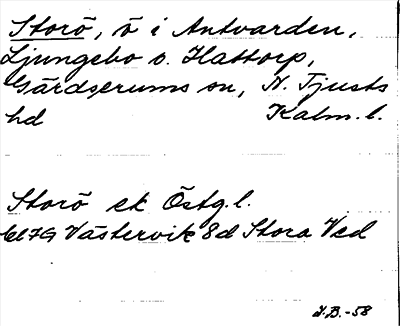 Storö, ö i Antvarden,
Ljungebo o. Hattorp,
Gärdserums sn, N. Tjusts
hd Kalm. l.
Storö ek Östg. l.
bl 7G Västervik 8d Stora Ved
I.B.-58